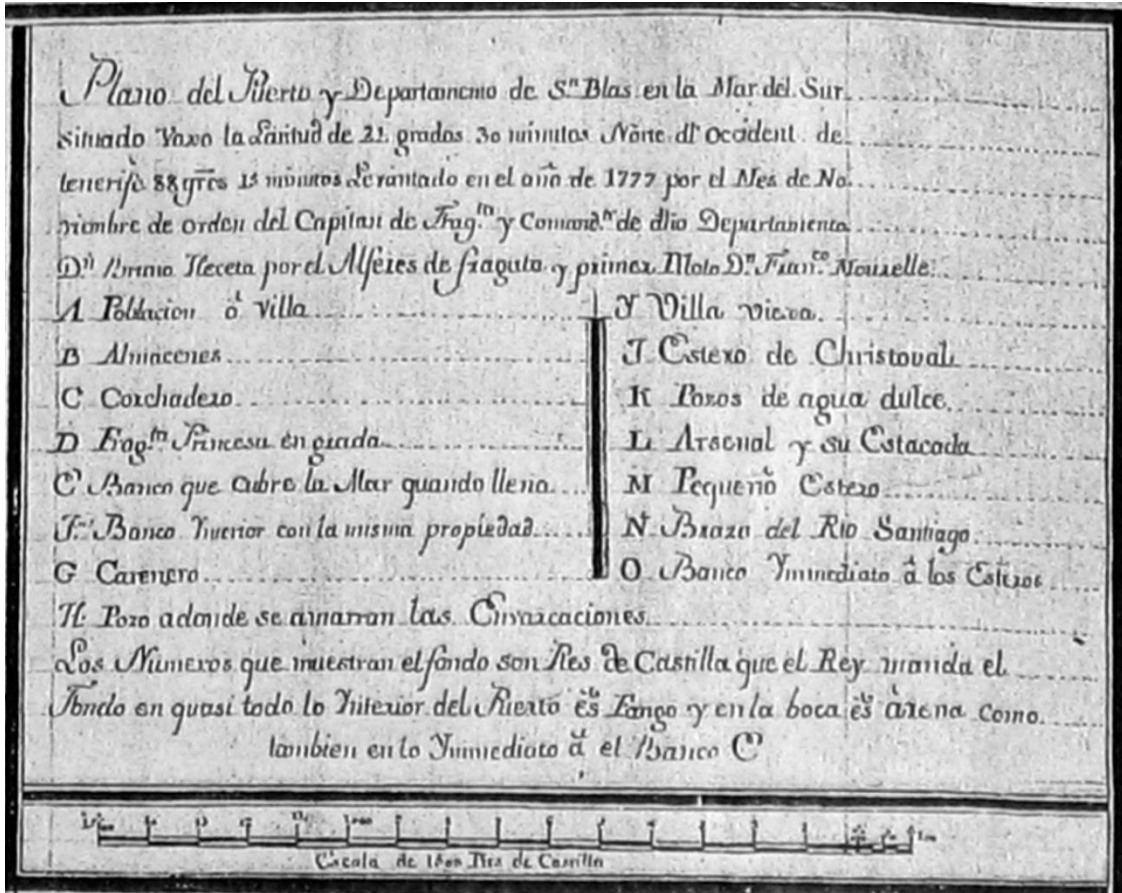 Plano del Puerto y Departamento de Sn Blas en la Mar del Sur
situado vaxo la Latitud de 21 grados 30 minutos Norte dl occident de
tenerife 88 gres 15 minutos Levantado en el año de 1777 por el Mes de No
viembre de orden del Capitan de Fragta y Comandte de dho Departamento
Dn Bruno Heceta por el Alferes de fragata y primer Piloto Dn Franco Mourelle
A Poblacion ó Villa
B Almacenes
C Corchadero
D Fragta Princesa en grada
E Banco que cubre la Mar quando llena
F Banco Ynterior con la misma propiedad
G Carenero
Y Villa viexa
J Estero de Christoval
K Pozos de agua dulce
L Arsenal y su Estacada
M Pequeño Estero
N Brazo del Rio Santiago
O Banco Ymmediato á los Esteros
H Pozo adonde se amarran las Envarcaciones
Los Numeros que muestran el fondo son Pies de Castilla que el Rey manda el
Fondo en quasi todo lo Ynterior del Puerto és Fango y en la boca és arena como
tambien en lo Ymmediato á el Banco E
Escala de 1500 Pies de Castilla